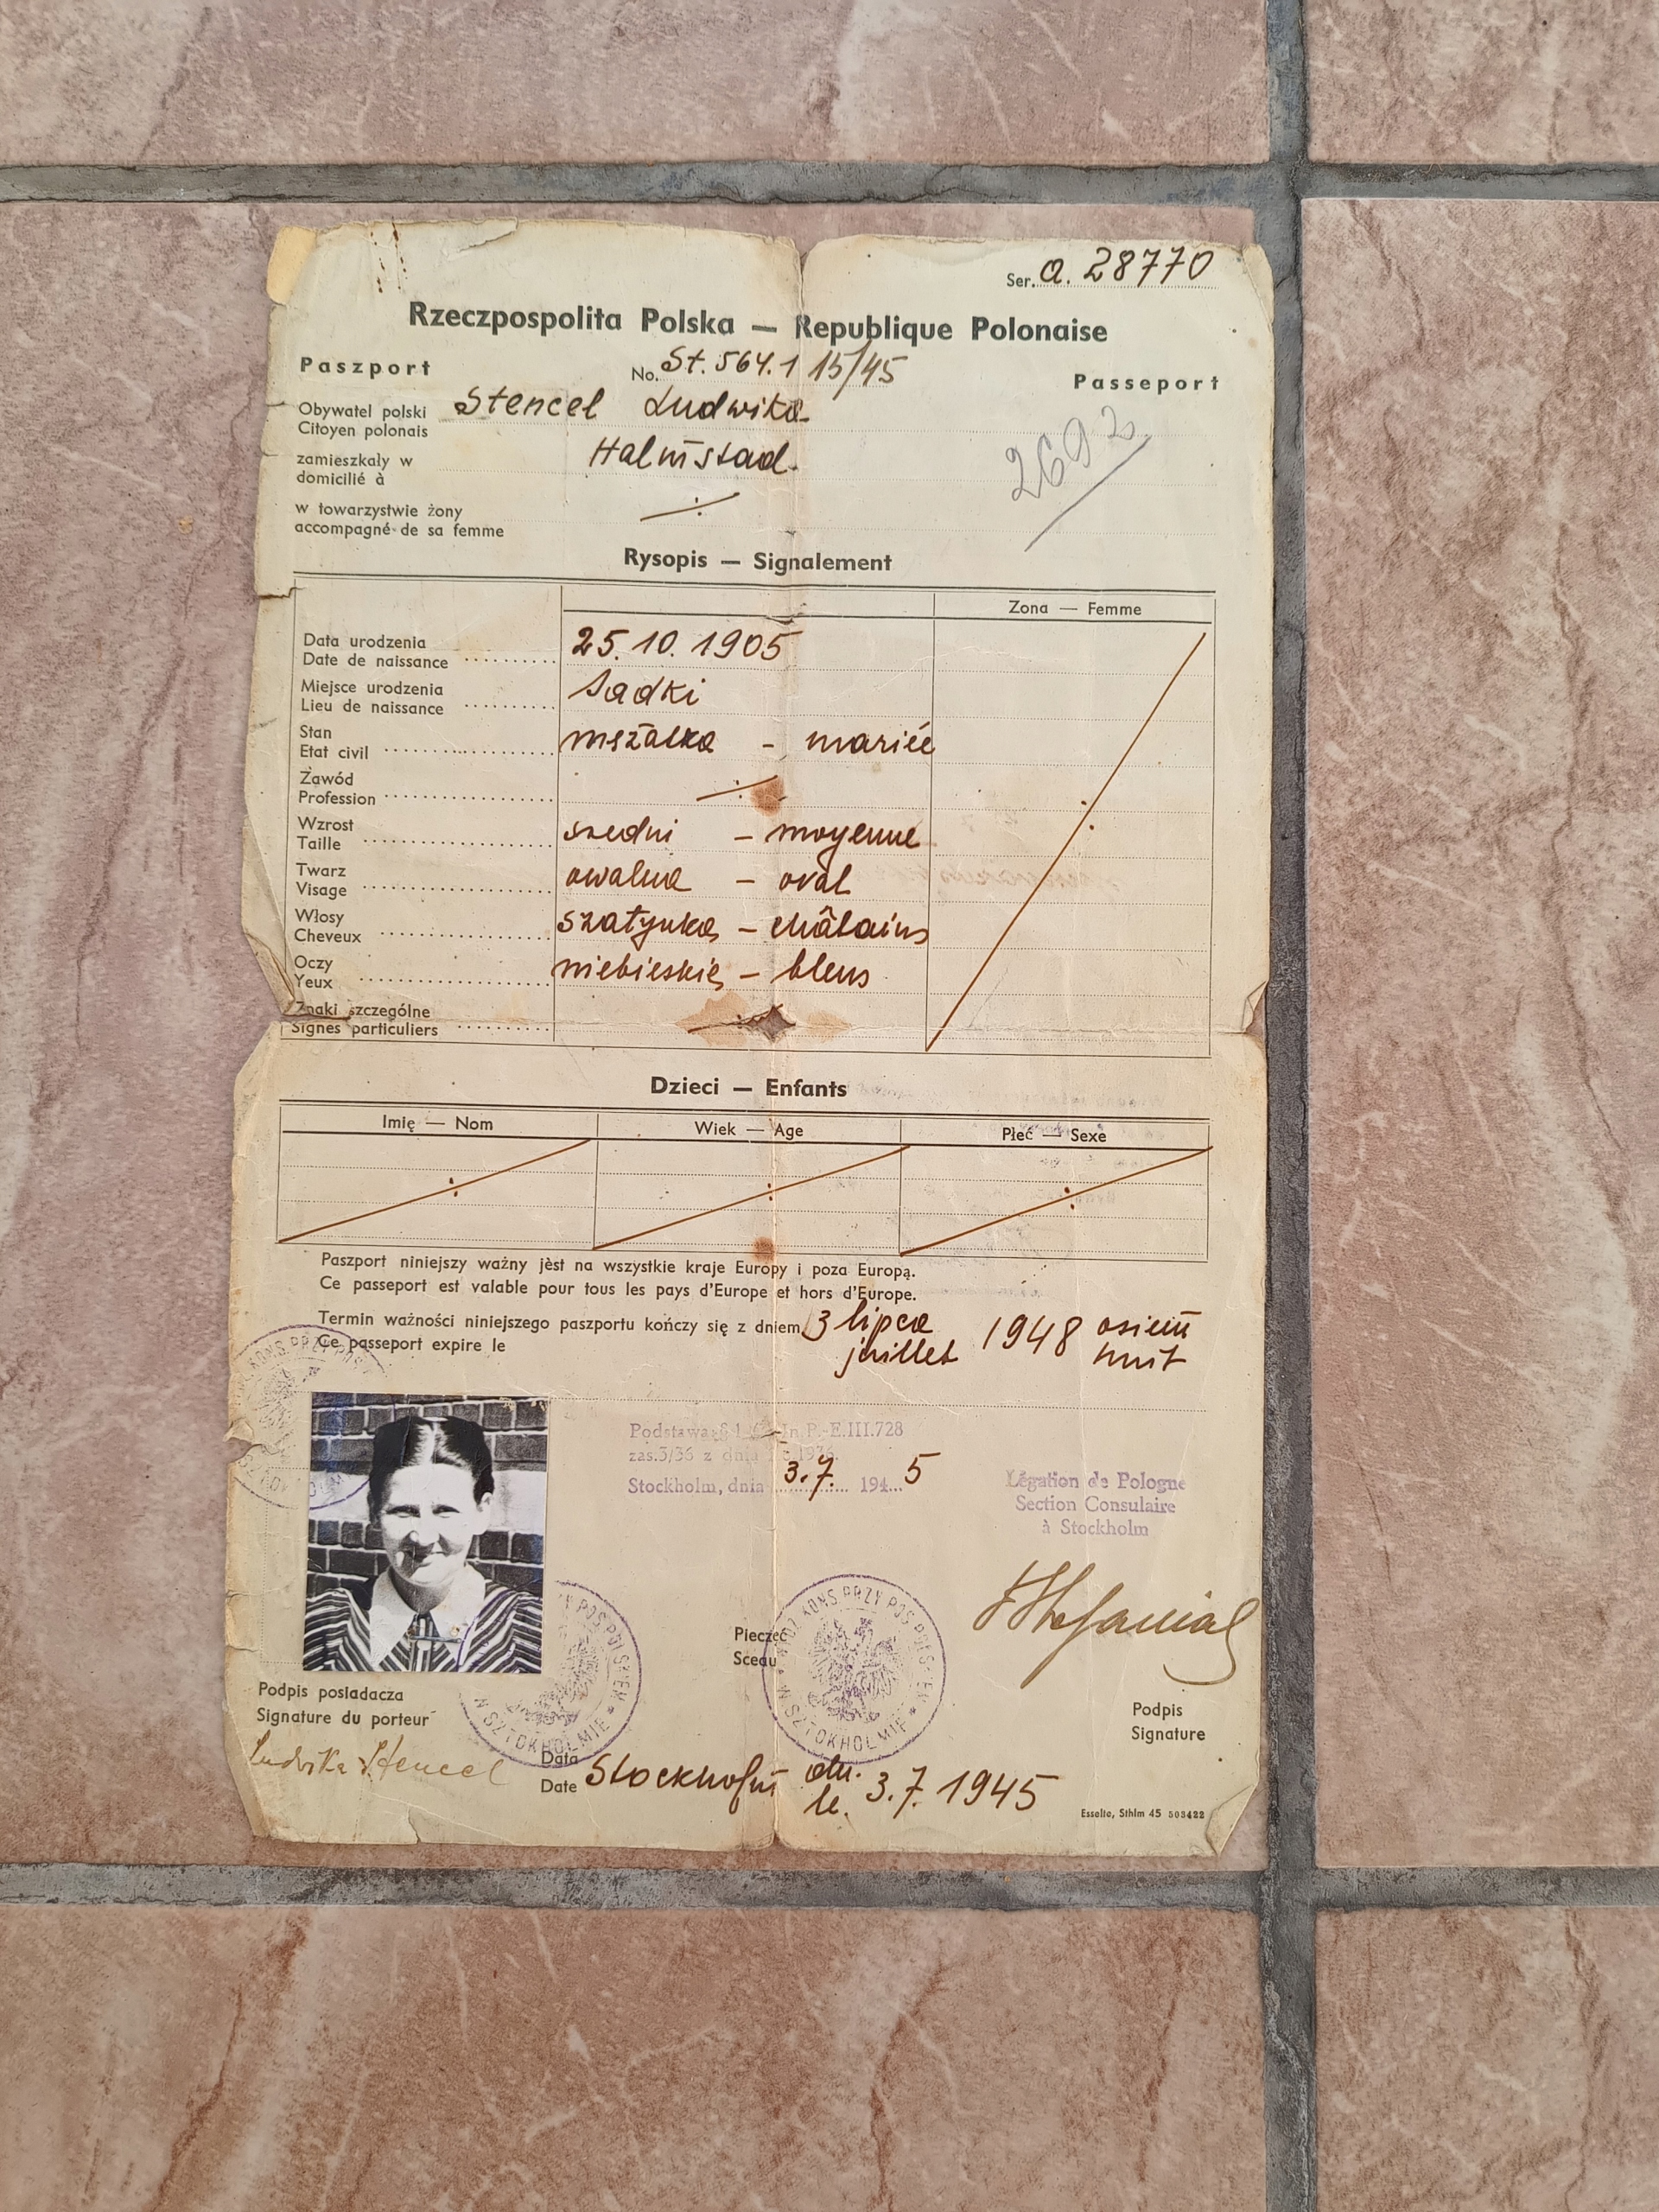 Ser. a. 28770
Rzeczpospolita Polska — Republique Polonaise
Paszport No. St. 564.1 15/45 Passeport
Obywatel polski Stencel Ludwika
Citoyen polonais
2692
zamieszkały w Halmstad.
domicilié à
w towarzystwie żony ÷
accompagné de sa femme
Rysopis — Signalement
Zona — Femme
Data urodzenia 25.10.1905
Date de naissance
Miejsce urodzenia Sadki
Lieu de naissance
Stan mężatka - mariée
Etat civil
Zawód ÷
Profession
Wzrost średni - moyenne
Taille
Twarz owalna - oval
Visage
Włosy szatynka - châtains
Cheveux
Oczy niebieskie - bleus
Yeux
Znaki szczególne
Signes particuliers
Dzieci — Enfants
Imię — Nom Wiek — Age Płeć — Sexe
÷ ÷ ÷
Paszport niniejszy ważny jèst na wszystkie kraje Europy i poza Europą.
Ce passeport est valable pour tous les pays d'Europe et hors d'Europe.
Termin ważności niniejszego paszportu kończy się z dniem 3 lipca 1948 osiem
Ce passeport expire le juillet huit
Podstawa: § 1 In. P.-E.III.728
zas.3/36 z dnia 1936.
Stockholm, dnia 3.7. 1945
Légation de Pologne
Section Consulaire
à Stockholm
KONS PRZY POS
KONS PRZY POS POLSKIEM W SZTOKHOLMIE
Pieczęć
Sceau
Podpis posiadacza
Signature du porteur
Ludwika Stencel
Podpis
Signature
Data Stockholm dn. 3.7.1945
Date le.
Esselte, Sthlm 45 503422